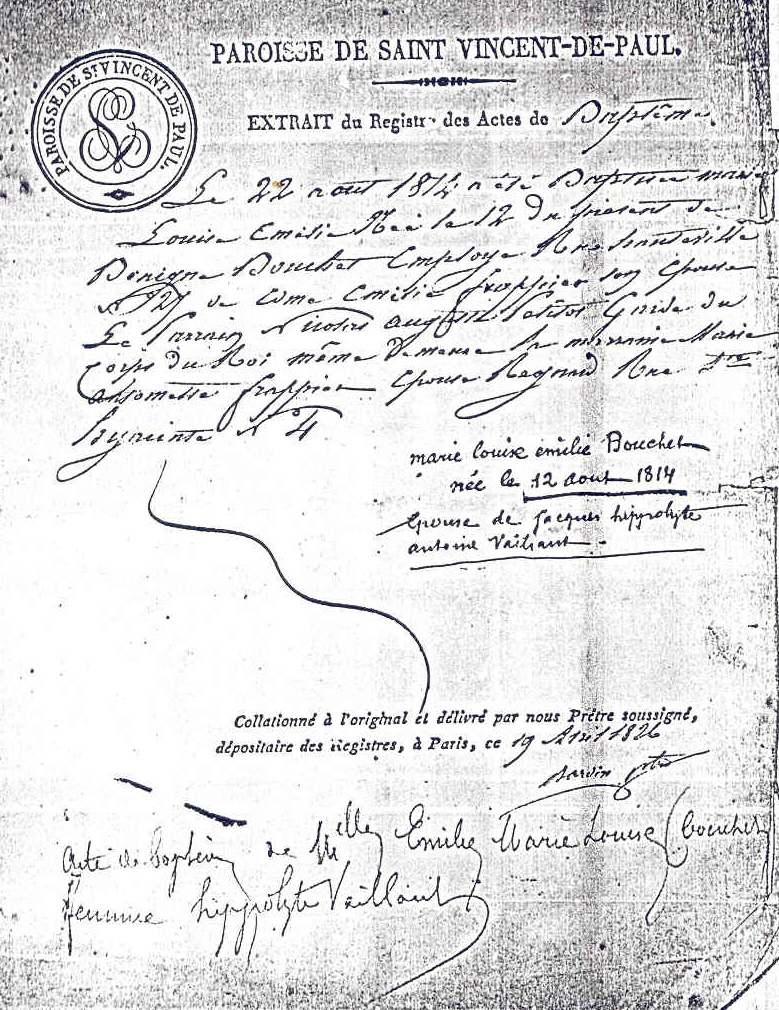 PAROISSE DE SAINT VINCENT-DE-PAUL.
PAROISSE DE St VINCENT DE PAUL.
EXTRAIT du Registre des Actes de Baptême.
Le 22 aout 1814 a été Baptisée marie
Louise Emilie Née le 12 du présent de
Benigne Bouchet Employé Rue hauteville
n° 27 de Emilie frappier son Epouse
Le Parrain Nicolas Garde du
Corps du Roi même demeure la marraine Marie
frappier Epouse Regnard Rue Ste
hyacinte n° 4
marie louise emilie Bouchet
née le 12 aout 1814
épouse de jacques hippolyte
antoine Vaillant.
Collationné à l'original et délivré par nous Prêtre soussigné,
dépositaire des Registres, à Paris, ce 19 Avril 1826
acte de baptême de Melle Emilie Marie Louise Bouchet
femme hippolyte Vaillant